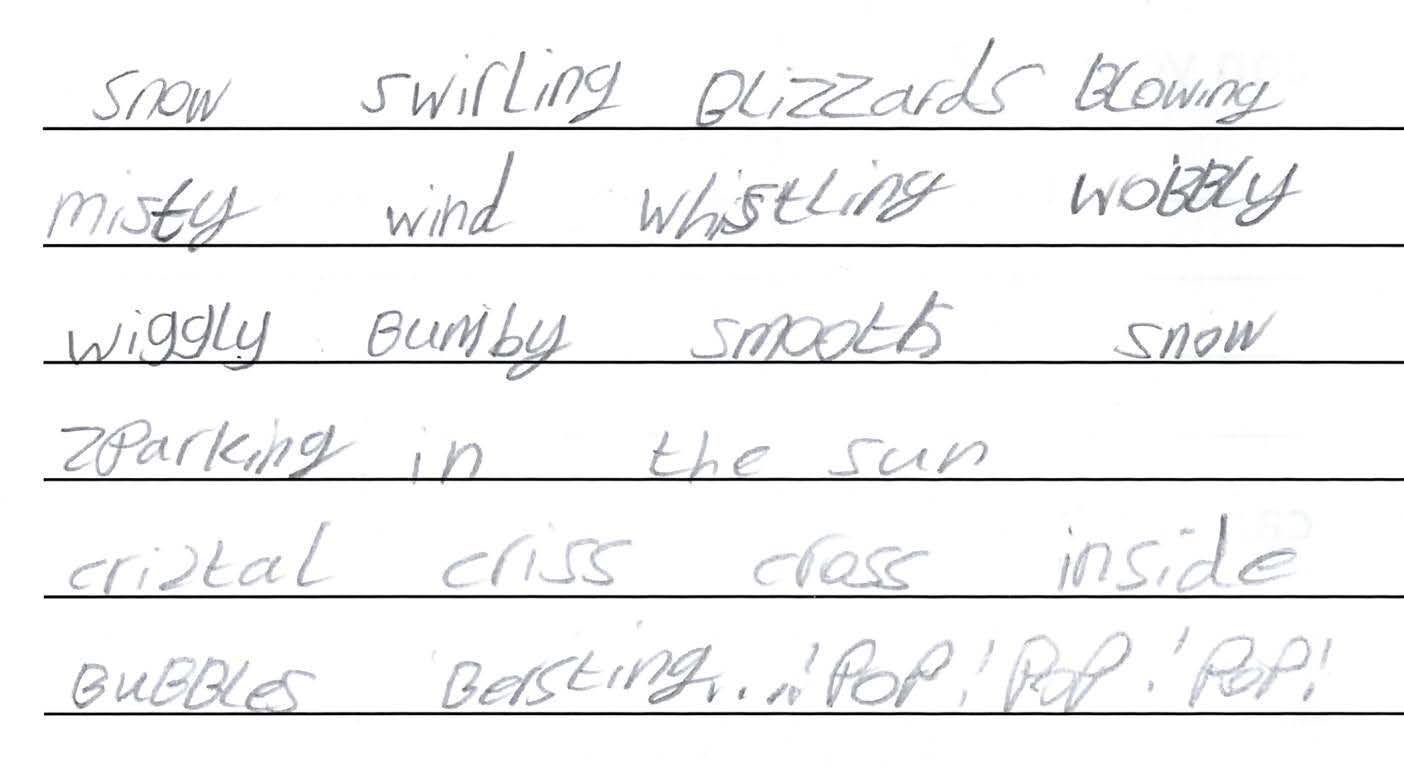 snow swirling Blizzards Blowing
misty wind whistling woBBly
wiggly Bumby smooth snow
zParking in the sun
criztal criss cross inside
BuBBles Bersting...!PoP!PoP!PoP!